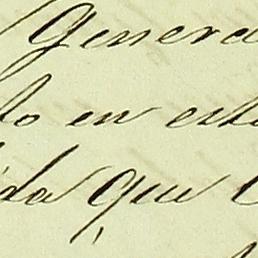 Genera
to en este
da que